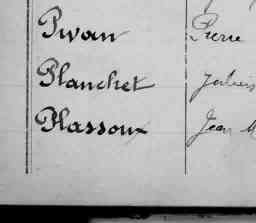 Pwan Pierre
Planchet Jules
Plassoux Jean M